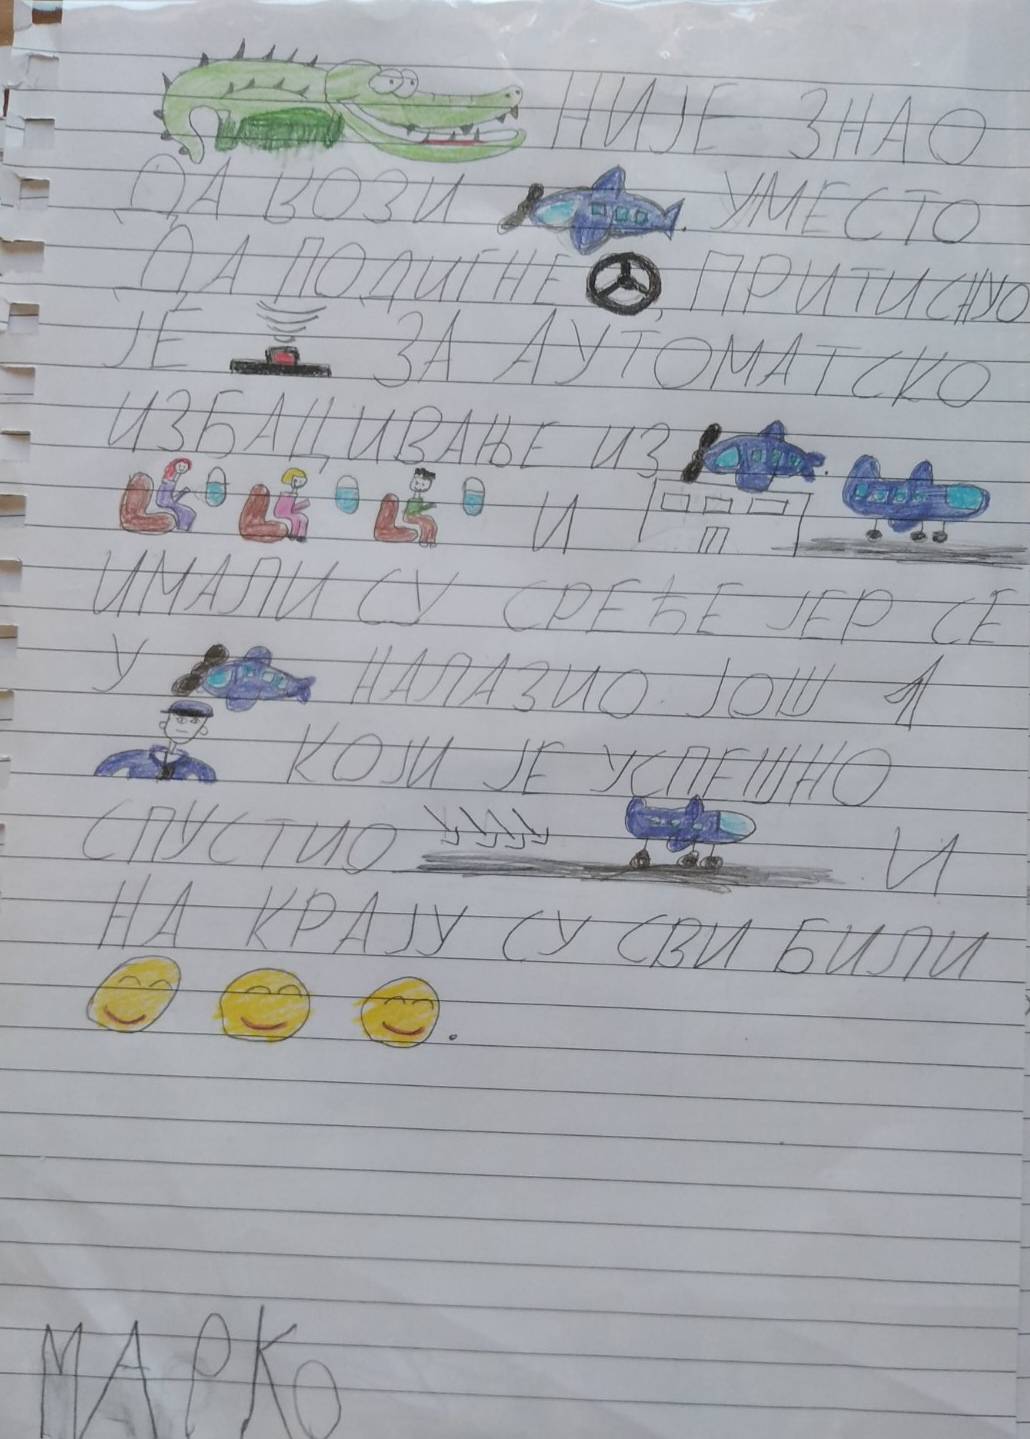 НИЈЕ ЗНАО
ДА ВОЗИ . УМЕСТО
ДА ПОДИГНЕ , ПРИТИСНУО
ЈЕ ЗА АУТОМАТСКО
ИЗБАЦИВАЊЕ ИЗ .
И
ИМАЛИ СУ СРЕЋЕ ЈЕР СЕ
У НАЛАЗИО ЈОШ 1
КОЈИ ЈЕ УСПЕШНО
СПУСТИО И
НА КРАЈУ СУ СВИ БИЛИ
.
МАРКО